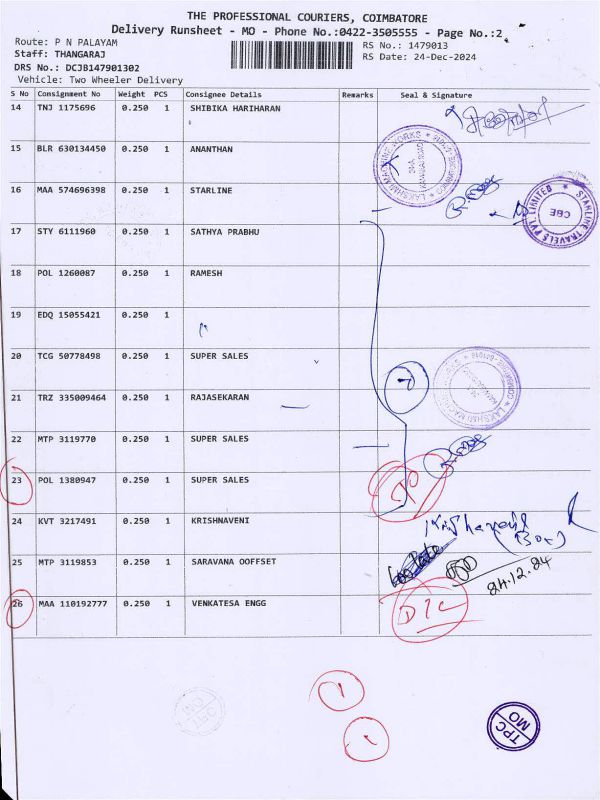 THE PROFESSIONAL COURIERS, COIMBATORE
Delivery Runsheet - MO - Phone No.:0422-3505555 - Page No.:2
Route: P N PALAYAM
RS No.: 1479013
Staff: THANGARAJ
RS Date: 24-Dec-2024
DRS No.: DCJB147901302
Vehicle: Two Wheeler Delivery
S No Consignment No Weight PCS Consignee Details Remarks Seal & Signature
14 TNJ 1175696 0.250 1 SHIBIKA HARIHARAN
15 BLR 630134450 0.250 1 ANANTHAN
LAKSHMI MACHINE WORKS
16 MAA 574696398 0.250 1 STARLINE
STARLINE TRAVELS PVT LIMITED
CBE
17 STY 6111960 0.250 1 SATHYA PRABHU
18 POL 1260087 0.250 1 RAMESH
19 EDQ 15055421 0.250 1
20 TCG 50778498 0.250 1 SUPER SALES
21 TRZ 335009464 0.250 1 RAJASEKARAN
22 MTP 3119770 0.250 1 SUPER SALES
23 POL 1380947 0.250 1 SUPER SALES
24 KVT 3217491 0.250 1 KRISHNAVENI
25 MTP 3119853 0.250 1 SARAVANA OOFFSET
24.12.24
26 MAA 110192777 0.250 1 VENKATESA ENGG
D/C
TPC
MO